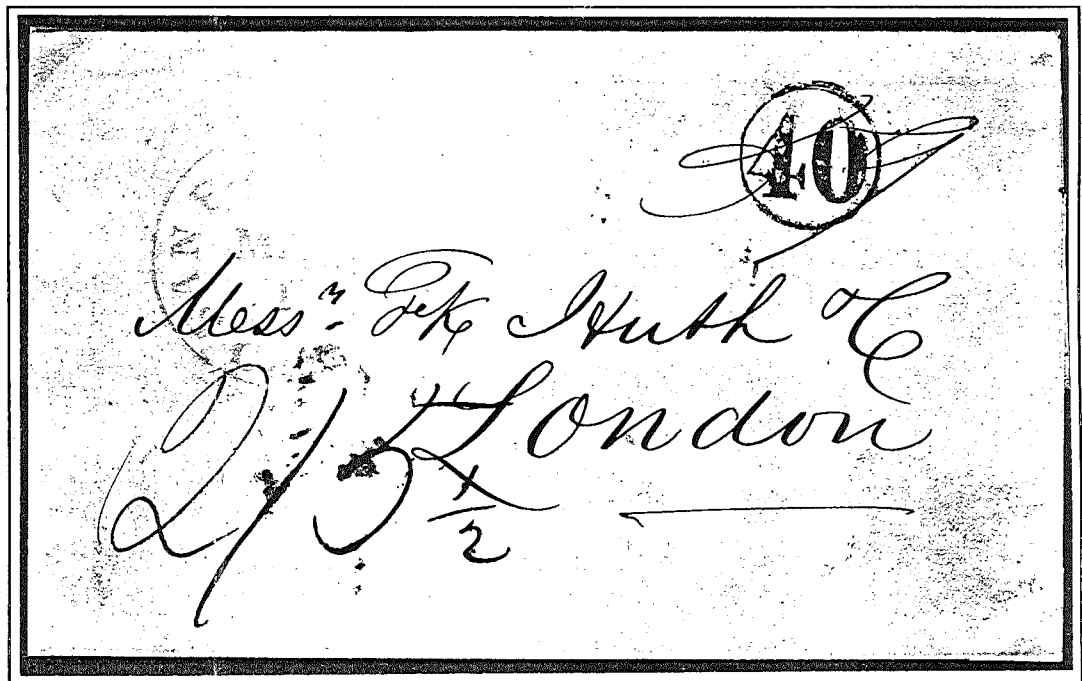 40
Messrs. Fk Huth & C
London
2/5 1/2